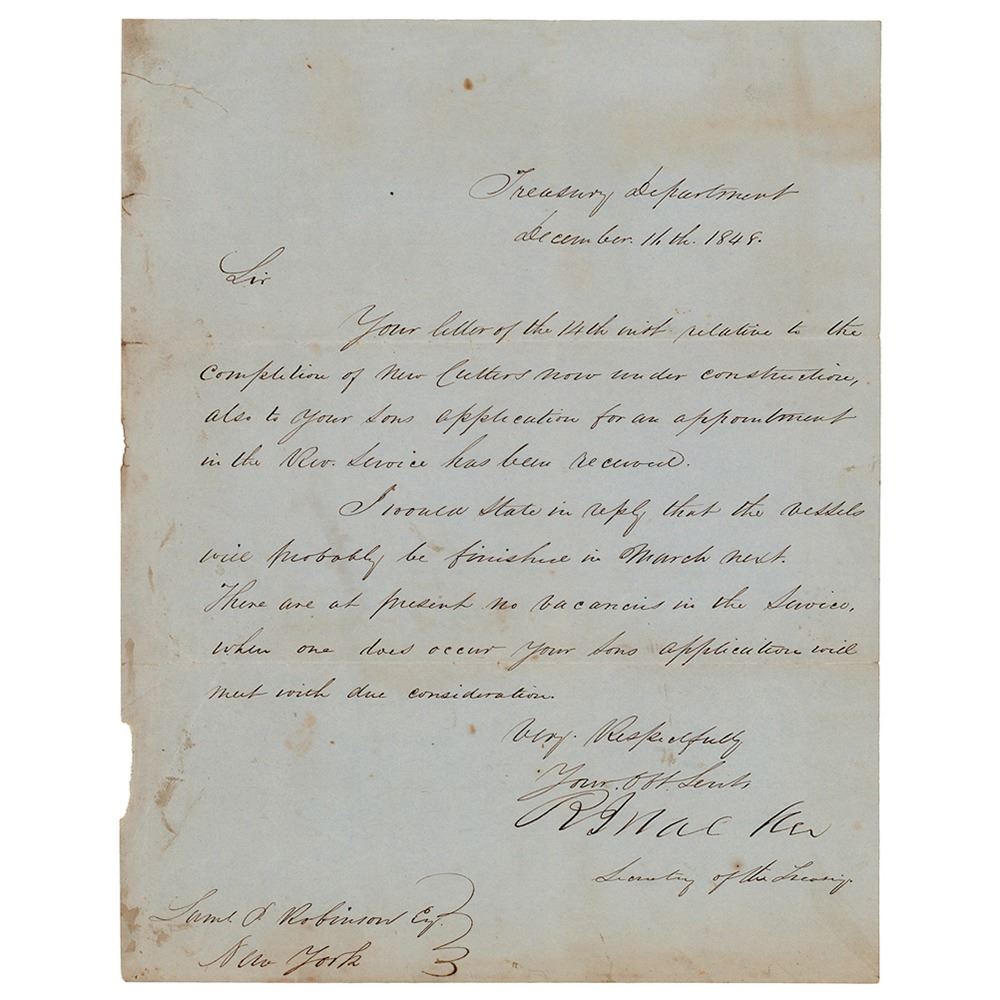 Treasury Department
December. 16th. 1848.
Sir
Your letter of the 14th inst relative to the
completion of New Cutters now under construction,
also to your sons application for an appointment
in the Rev. Service has been received.
I would state in reply that the vessels
will probably be finished in March next.
There are at present no vacancies in the Service,
when one does occur your sons application will
meet with due consideration.
Very. Respectfully
Your. Obt. Servt.
R J Walker
Secretary of the Treasury
Saml. Robinson Esq.
New York